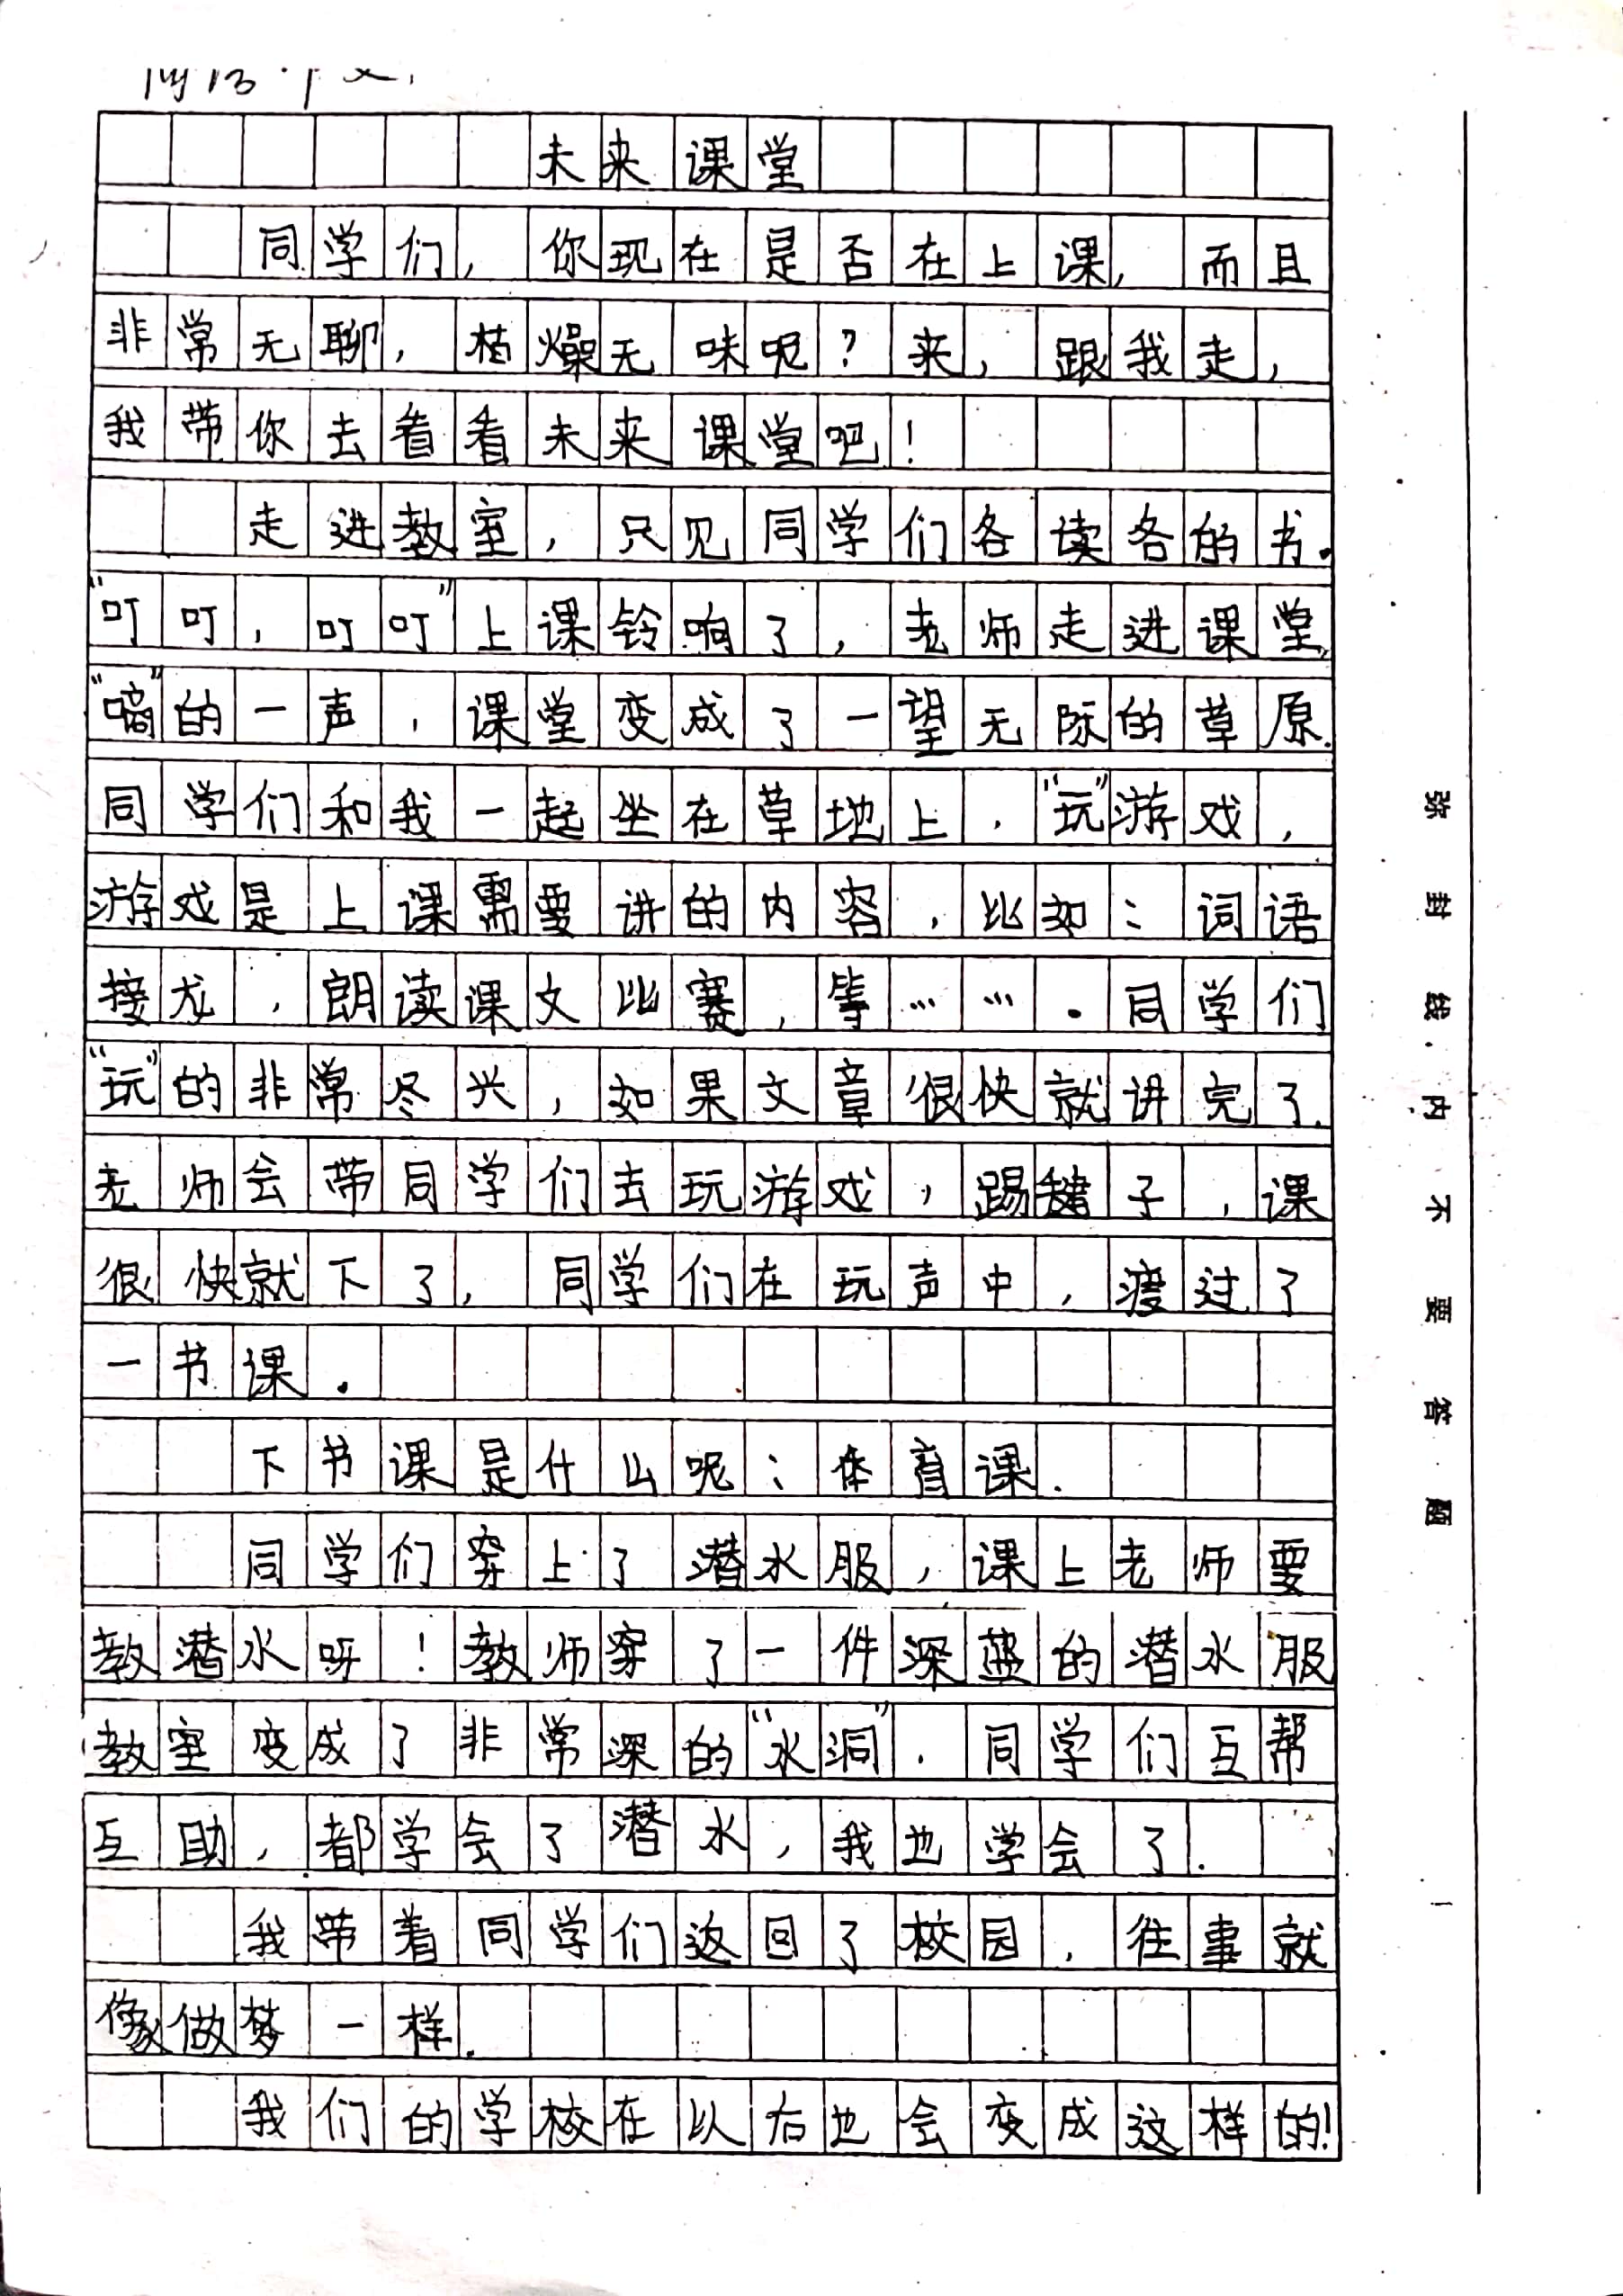 未来课堂
同学们，你现在是否在上课，而且
非常无聊，枯燥无味呢？来，跟我走，
我带你去看看未来课堂吧！
走进教室，只见同学们各读各的书.
“叮叮，叮叮”上课铃响了，老师走进课堂，
“嘀”的一声，课堂变成了一望无际的草原.
同学们和我一起坐在草地上，“玩”游戏，
游戏是上课需要讲的内容，比如：词语
接龙，朗读课文比赛，等……. 同学们
“玩”的非常尽兴，如果文章很快就讲完了.
老师会带同学们去玩游戏，踢毽子，课
很快就下了，同学们在玩声中，渡过了
一节课.
下节课是什么呢：体育课.
同学们穿上了潜水服，课上老师要
教潜水呀！教师穿了一件深蓝的潜水服
教室变成了非常深的“水洞”. 同学们互帮
互助，都学会了潜水，我也学会了.
我带着同学们返回了校园，往事就
像做梦一样.
我们的学校在以后也会变成这样的！
弥封线内不要答题